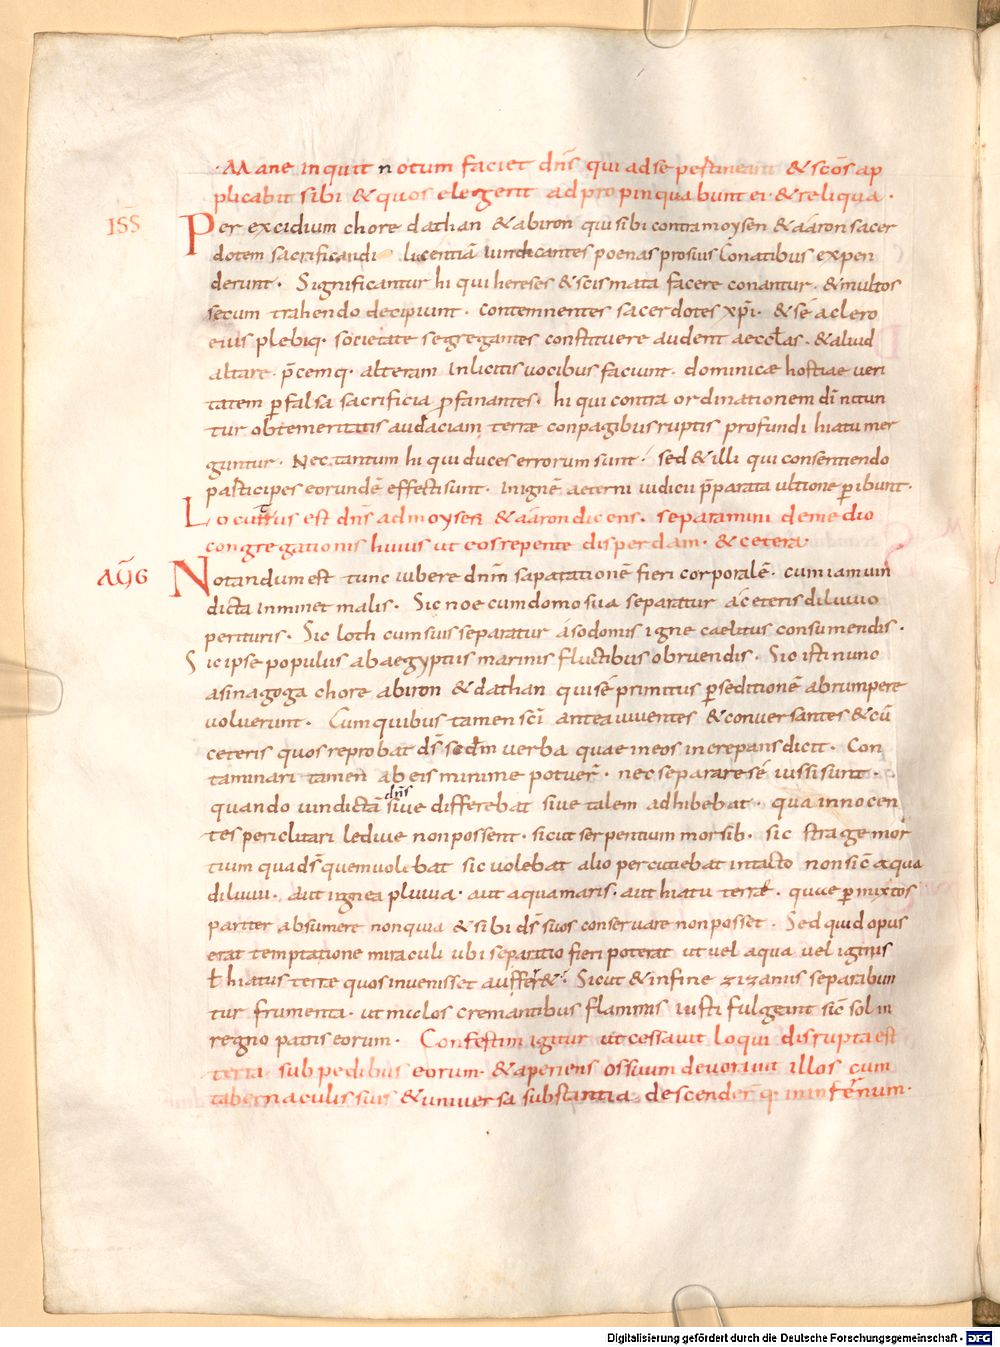 · Mane inquit notum faciet dn̄s qui ad se pertineant & sc̄os ap
plicabit sibi & quos elegerit adpropinquabunt ei · & reliqua ·
ISS̄
Per excidium chore dathan & abiron qui sibi contra moysen & aaron sacer
dotem sacrificandi licentiā uindicantes poenas prosuis conatibus expen
derunt · Significantur hi qui hereses & scismata facere conantur · & multos
secum trahendo decipiunt · contemnentes sacerdotes xp̄i · & sé aclero
eius plebiq· societate segregantes constituere audent aeccl̄as · & aliud
altare · p̄cemq· alteram inlicitis uocibus faciunt · dominicae hostiae ueri
tatem ꝑ falsa sacrificia ꝓfanantes · hi qui contra ordinationem dī nitun
tur ob temeritatis audaciam terrae conpagibus ruptis profundi hiatu mer
guntur · Nec tantum hi qui duces errorum sunt · sed & illi qui consentiendo
participes eorundē effecti sunt · in ignē aeterni iudicii p̄parata ultione ꝑibunt ·
Locutus est dn̄s ad moysen & aaron dicens · separamini de medio
congregationis huius ut eos repente disperdam · & cetera ·
AUG
Notandum est tunc iubere dn̄m saparationē fieri corporalē · cum iam uin
dicta inminet malis · Sic noe cum domo sua separatur a ceteris diluuio
perituris · Sic loth cum suis separatur á sodomis igne caelitus consumendis ·
Sic ipse populus ab aegyptiis marinis fluctibus obruendis · Sic isti nunc
a sinagoga chore abiron & dathan qui sé primitus ꝑ seditionē abrumpere
uoluerunt · Cum quibus tamen sc̄i antea uiuentes & conuersantes & cū
ceteris quos reprobat dī sec̄dm uerba quae in eos increpans dicit · Con
taminari tamen ab eis minime potuer̄ · nec separare sé iussi sunt ·
dn̄s
quando uindictā siue differebat siue talem adhibebat · qua innocen
tes periclitari lediue non possent · sicut serpentium morsib· sic strage mor
tium qua dī quem uolebat sic uolebat alio percutiebat intacto non sic̄ aqua
diluuii · aut ignea pluuia · aut aqua maris · aut hiatu terrae · quae ꝑmixtos
pariter absumere non quia & sibi dī suos conseruare non posset · Sed quid opus
erat temptatione miraculi ubi separatio fieri poterat ut uel aqua uel ignis
ł hiatus terrae quos inuenisset aufferr& · Sicut & in fine zizaniis separabun
tur frumenta · ut in iclos cremantibus flammis iusti fulgeant sic̄ sol in
regno patris eorum · Confestim igitur ut cessauit loqui disrupta est
terra sub pedibus eorum · & aperiens os suum deuorauit illos cum
tabernaculis suis & uniuersa substantia · descender̄q· in infernum ·
Digitalisierung gefördert durch die Deutsche Forschungsgemeinschaft - DFG